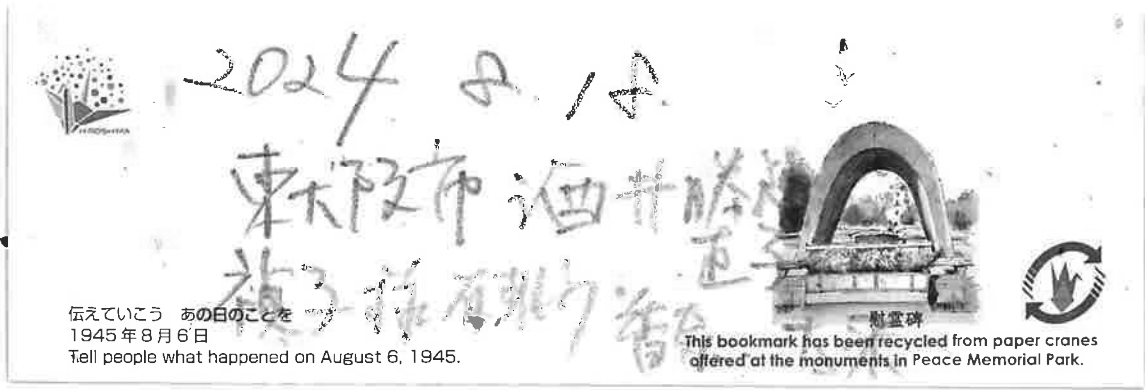 HIROSHIMA
2024 8.18
東大阪市 酒井勝
禎子様
伝えていこう あの日のことを
1945年8月6日
Tell people what happened on August 6, 1945.
慰霊碑
This bookmark has been recycled from paper cranes
offered at the monuments in Peace Memorial Park.